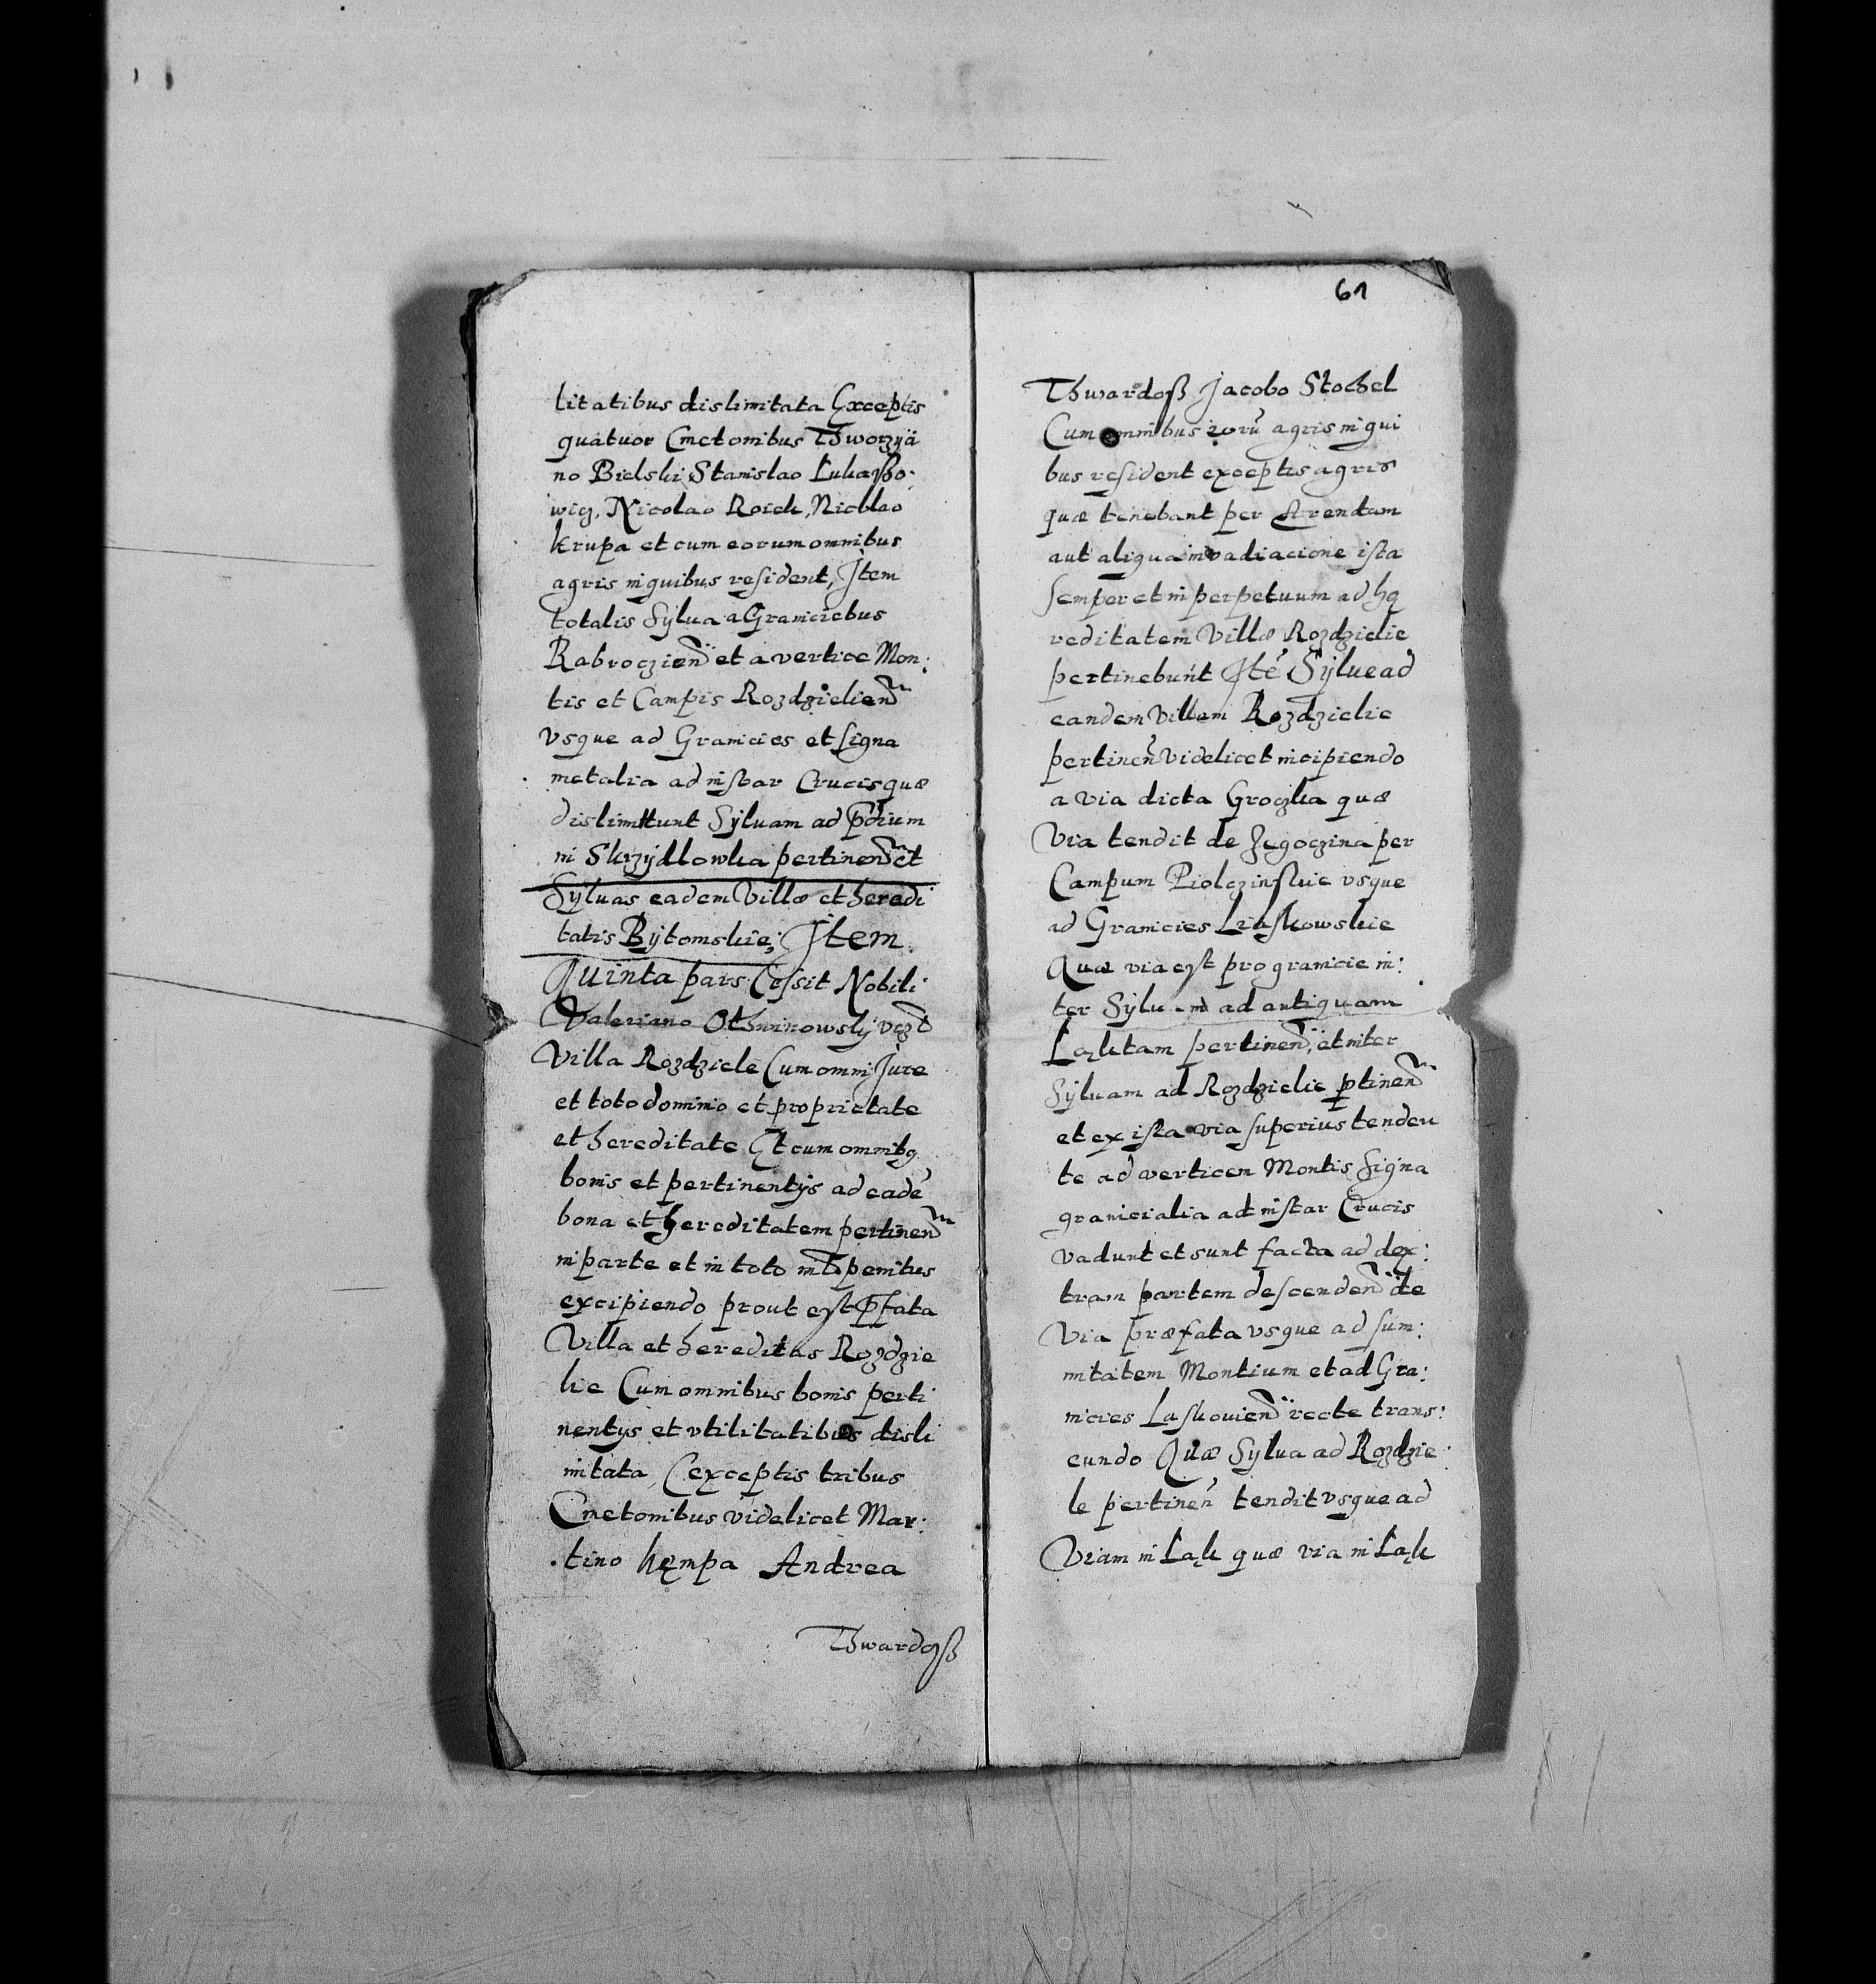 litatibus dislimitata Exceptis
quatuor Cmetonibus Thworzÿä
no Bielski Stanislao Lukaßo:
wicz, Nicolao Roick, Nicolao
krupa et cum eorum omnibus
agris in quibus resident, Item
totalis Sÿlua a Graniciebus
Rabroczien̄ et a vertice Mon:
tis et Campis Rozdzielien̄
vsque ad Granicies et signa
metalia ad instar Crucis quæ
dislimitunt Sÿluam ad p̄dium
in Skrzÿdlowka pertinen̄ et
Sÿluas eadem Villæ et heredi
tatis Bÿtomskie; Item
Quinta pars Cessit Nobili
Valeriano Othwinowskÿ vczt
Villa Rozdziele Cum omni Jure
et toto dominio et proprietate
et hereditate Et cum omnibq
bonis et pertinentÿs ad eadē
bona et hereditatem pertinen̄
in parte et in toto nīl penitus
excipiendo prout est p̄fata
Villa et hereditas Rozdzie
lie Cum omnibus bonis perti
nentÿs et vtilitatibus disli
mitata, Exceptis tribus
Cmetonibus videlicet Mar:
tino kępa Andrea
Thwardoß
61
Thwardoß Jacobo Stochel
Cum omnibus eorū agris in qui
bus resident exceptis agris
quæ tenebant per Arendam
aut aliqua invadiacione ista
semper et in perpetuum ad hę
reditatem Villæ Rozdzielie
pertinebunt Itē Sÿlue ad
eandem Villam Rozdzielie
pertinen̄ videlicet incipiendo
a via dicta Groczka quæ
Via tendit de Zegoczina per
Campum Piolczinskie vsque
ad Granicies Liaskowskie
Quæ via est pro granicie in:
ter Sÿluam ad antiquam
Ląktam pertinen̄, et inter
Sÿluam ad Rozdzielie ptinen̄
et ex ista via superius tenden
te ad verticen Montis Signa
granicialia ad instar Crucis
vadunt et sunt facta ad dex:
tram partem descenden̄ de
Via præfata vsque ad sum:
mitatem Montium et ad Gra:
nicies Laskovien̄ recte trans:
eundo Quæ Sÿlua ad Rozdzie:
le pertinen̄ tendit vsque ad
Viam in Ląk quæ via in Ląk